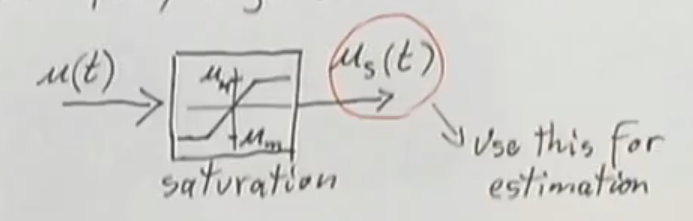 u(t)
u_M
u_m
u_s(t)
saturation
Use this for
estimation